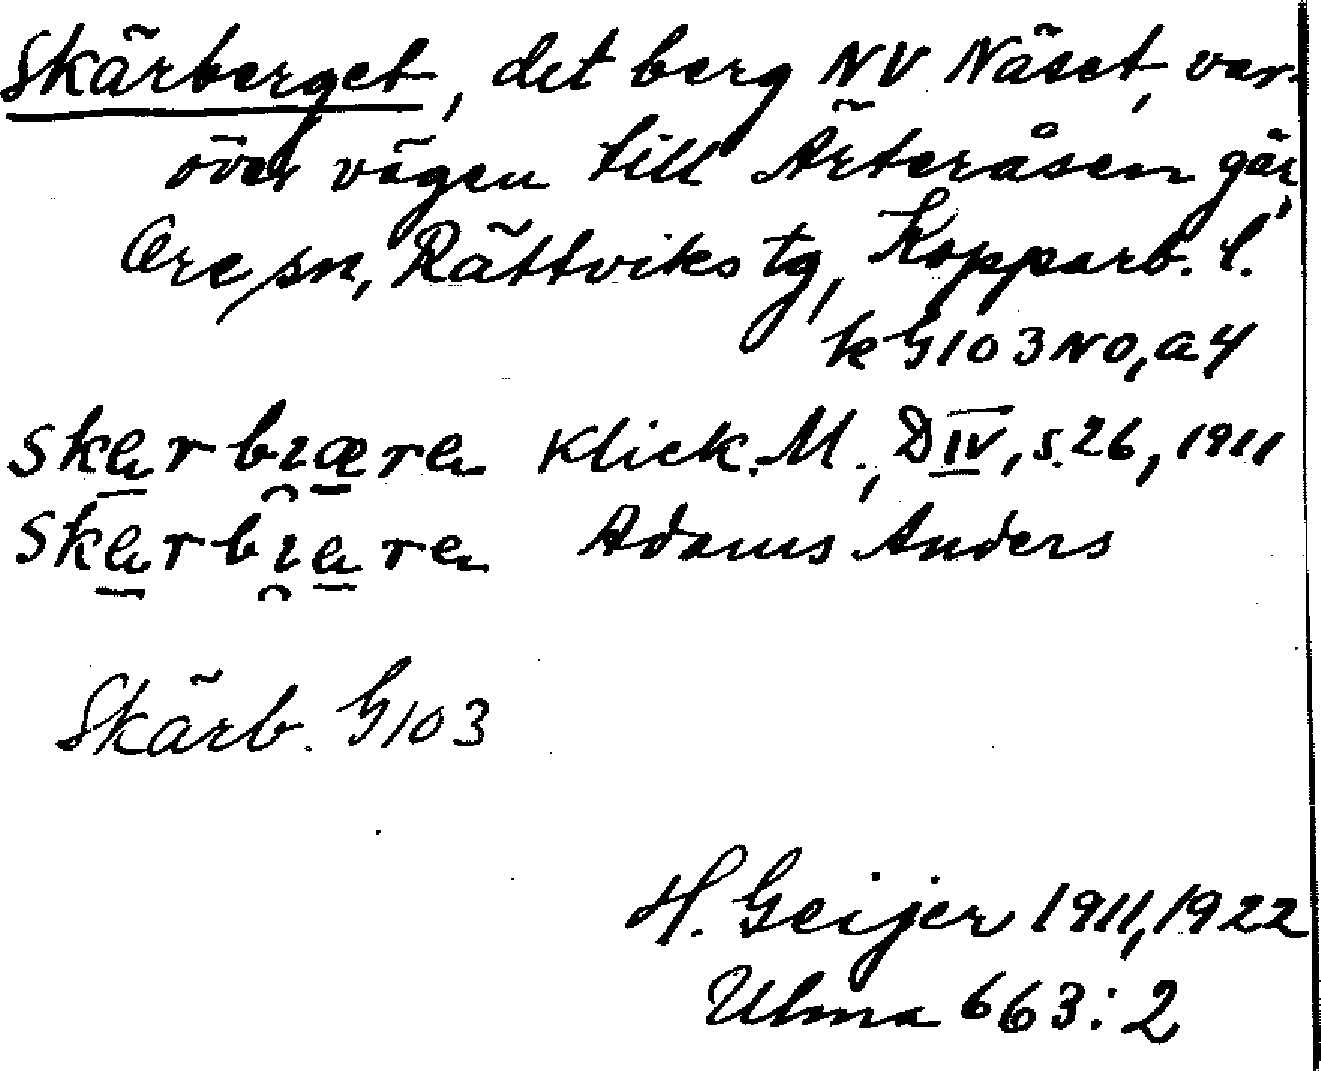 Skärberget, det berg NV Näset, var-
över vägen till Ärteråsen går,
Ore sn, Rättviks tg, Kopparb. l.
k G103NO, a4
Skɐrbıære Klick. M., D IV, s. 26, 1911
Skɐrbıɐre Adams Anders
Skärb. G103
H. Geijer 1911, 1922
Ulma 663:2